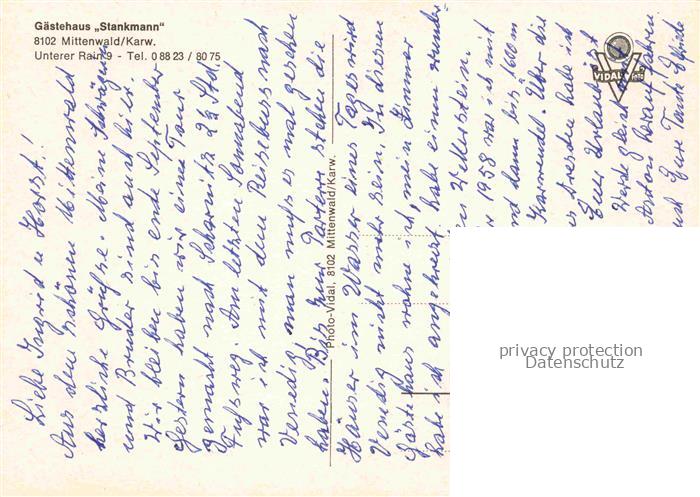 Gästehaus „Stankmann"
8102 Mittenwald/Karw.
Unterer Rain 9 - Tel. 0 88 23 / 80 75
VIDAL
Photo-Vidal, 8102 Mittenwald/Karw.
Liebe Ingrid u Horst!
Aus den schönen Mittenwald
herzliche Grüße. Meine Schwägerin
und Bruder sind auch hier
Wir bleiben bis ende September
Gestern haben wir eine Tour
gemacht nach Scharnitz 2½ Std.
Fußweg. Am letzten Sonnabend
war ich mit dem Reisebuss nach
Venedig, man muß es mal gesehen
haben. Bis zum stehen die
Häuser im Wasser eines Tages wird
Venedig nicht mehr sein. In diesem
Gästehaus wohne ich, mein Zimmer
habe ich angekreuzt habe einen
1958 war ich mit
und dann bis 1600 m
Karwendel. Über die
Dresden habe ich
Euer Urlaub ist
Wird gleich
herauf fahren.
Eure Tante Elfriede
privacy protection
Datenschutz